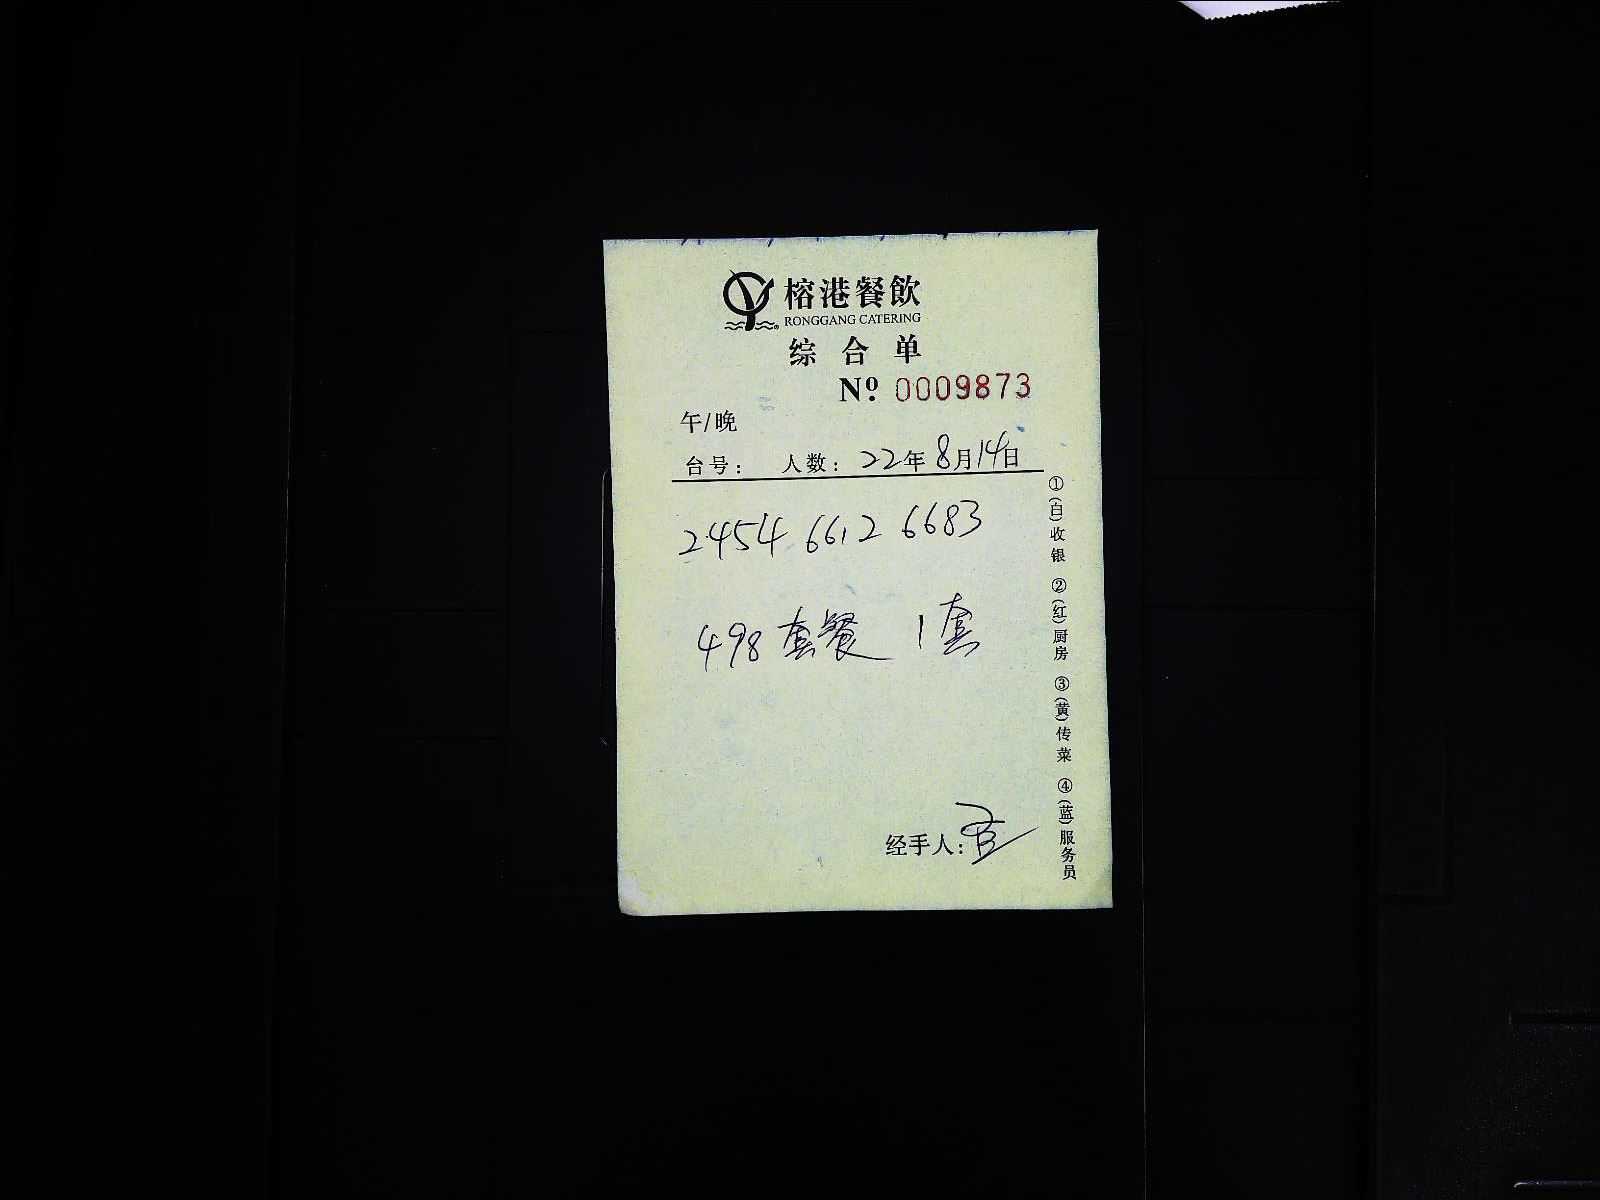 榕港餐飲
RONGGANG CATERING
综合单
Nº. 0009873
午/晚
台号： 人数： 22年8月14日
2454 6612 6683
498套餐 1套
经手人：
①(白)收银 ②(红)厨房 ③(黄)传菜 ④(蓝)服务员